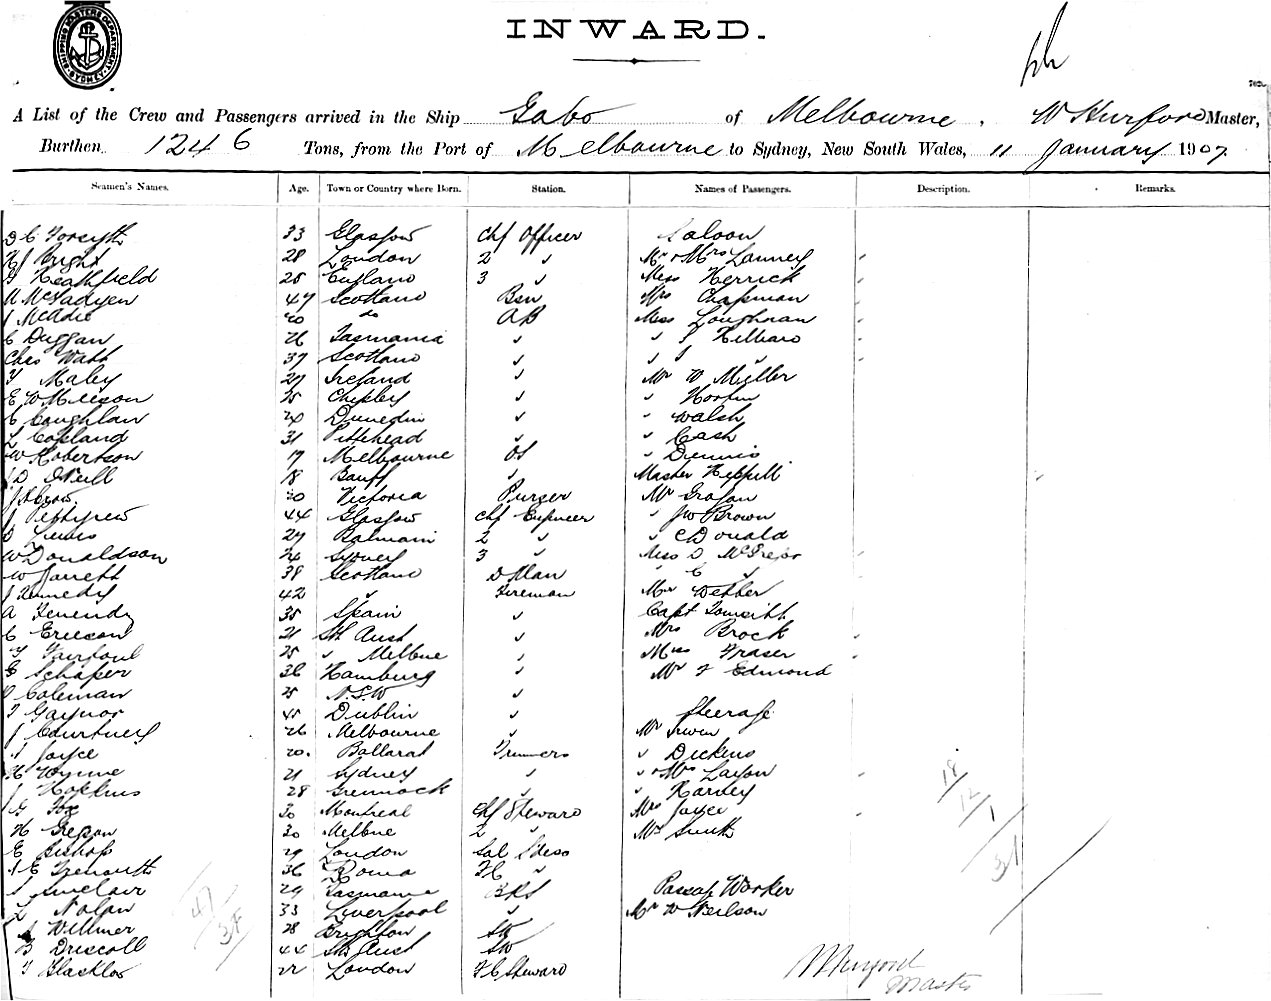 SHIPPING MASTERS DEPARTMENT SYDNEY
INWARD.
A List of the Crew and Passengers arrived in the Ship Gabo of Melbourne. W Hurford Master,
Burthen 1246 Tons, from the Port of Melbourne to Sydney, New South Wales, 11 January 1907
Seamen's Names. Age. Town or Country where Born. Station. Names of Passengers. Description. Remarks.
D C Forsyth 33 Glasgow Chf Officer Saloon
H J Bright 28 London 2 " Mr & Mrs Lanney
Heathfield 25 England 3 " Miss Herrick
McFadyen 47 Scotland Bsn Mrs Chapman
McAdie 20 do AB Miss Loughnan
C Duggan 26 Tasmania " " J
Chas Watt 37 Scotland " " J "
Maley 27 Ireland " Mr W Müller
E W 25 " "
C Coughlan Dunedin " " Walsh
L Copland 31 " " Cash
W Robertson 17 Melbourne OS " Dennis
J D O'Neill 18 Banff " Master
20 Victoria Purser Mr Grogan
J Pettigrew 44 Glasgow Chf Engineer " JW Brown
D Lewis 27 Balmain 2 " " C Donald
W Donaldson 24 Sydney 3 " Miss D McGregor
W Jarrett 38 Scotland D Man " C "
J Kennedy 42 " Fireman Mr Webber
A 35 Spain " Capt
C Ericson 21 Sth Aust " Mrs Brock
Fairfoul 25 " Melbne " Miss Fraser
E Schaper 36 Hamburg " Mr F Edmond
Coleman 25 N.S.W "
Gaynor 45 Dublin " Steerage
J Courtney 26 Melbourne " Mr Irwin
Joyce 20. Ballarat Trimmers " Dickens
H Wynne 21 Sydney " " & Mrs Layon
J Hopkins 28 Greenock " " Harvey
J G Fox 30 Montreal Chf Steward Mrs Joyce
H 30 Melbne 2 " Mr Smith
E Bishop 29 London Sal Stess
E Trenouth 36 Roma FC "
Sinclair 29 Tasmania BRS Passage Worker
L Nolan 33 Liverpool " Mr W Neilson
J Willmer 28 Brighton SW
Driscoll 44 Sth Aust SW
22 London FC Steward
47
38
18
12/1
31
W Hurford
Master